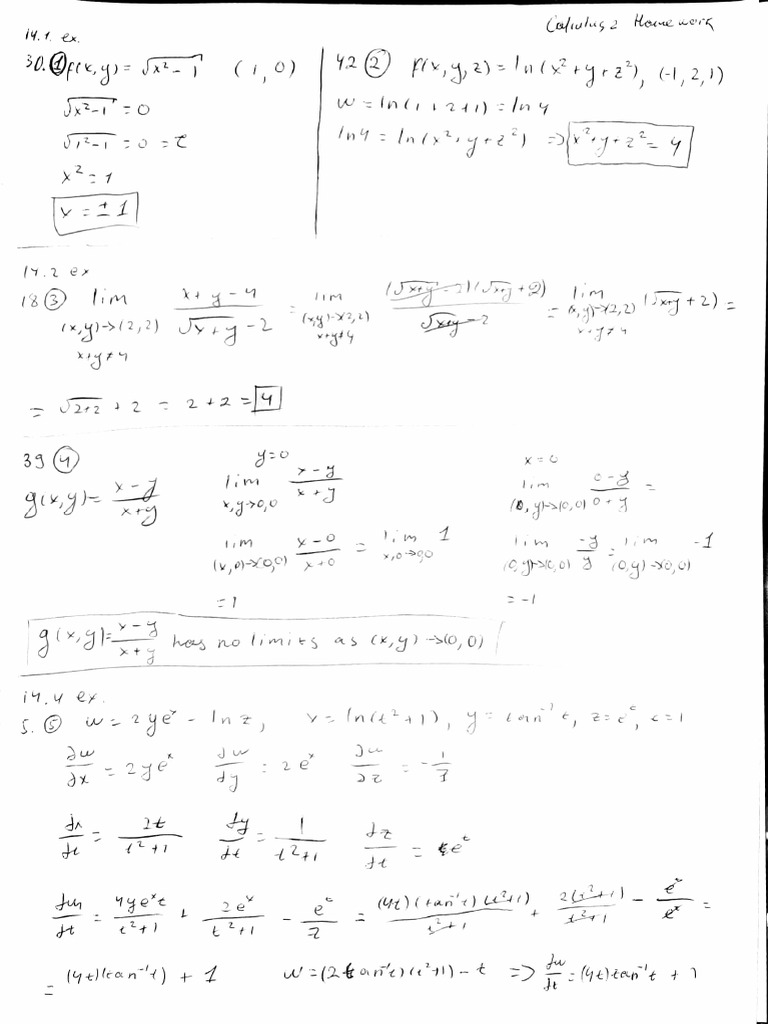 Calculus 2 Homework
14.1. ex.
30. ① f(x,y) = √(x²-1) (1,0)
√(x²-1) = 0
√(1²-1) = 0 = c
x² = 1
x = ± 1
42 ② f(x,y,z) = ln(x²+y+z²), (-1,2,1)
w = ln(1+2+1) = ln 4
ln 4 = ln(x²+y+z²) => x²+y+z² = 4
14.2 ex
18 ③ lim (x,y)->(2,2) x+y≠4 (x+y-4)/(√(x+y) -2) = lim (x,y)->(2,2) x+y≠4 (√(x+y) -2)(√(x+y) +2)/(√(x+y) -2) = lim (x,y)->(2,2) x+y≠4 (√(x+y) +2) =
= √(2+2) + 2 = 2+2 = 4
39 ④
g(x,y) = (x-y)/(x+y)
y=0
lim x,y->0,0 (x-y)/(x+y)
lim (x,0)->(0,0) (x-0)/(x+0) = lim x,0->0,0 1
= 1
x=0
lim (0,y)->(0,0) (0-y)/(0+y) =
lim (0,y)->(0,0) -y/y = lim (0,y)->(0,0) -1
= -1
g(x,y) = (x-y)/(x+y) has no limits as (x,y)->(0,0)
14.4 ex.
5. ⑤ w = 2ye^x - ln z, x = ln(t²+1), y = tan⁻¹ t, z = e^t, t = 1
∂w/∂x = 2ye^x ∂w/∂y = 2e^x ∂w/∂z = -1/z
dx/dt = 2t/(t²+1) dy/dt = 1/(t²+1) dz/dt = e^t
dw/dt = 4ye^x t/(t²+1) + 2e^x/(t²+1) - e^t/z = (4t)(tan⁻¹t)(t²+1)/(t²+1) + 2(t²+1)/(t²+1) - e^t/e^t =
= (4t)(tan⁻¹t) + 1 w = (2tan⁻¹t)(t²+1) - t => dw/dt = (4t)tan⁻¹t + 1